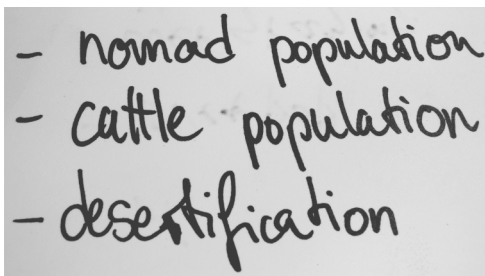 - nomad population
- cattle population
- desertification